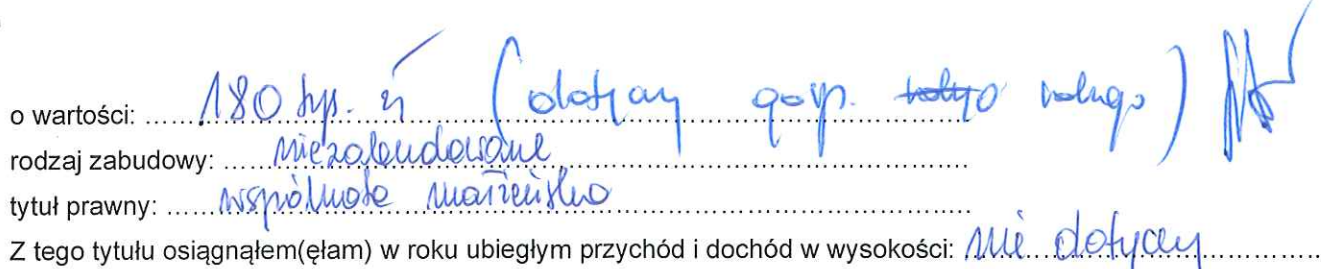 o wartości: ......180 tys. zł (dotyczy gosp. rolnego)
rodzaj zabudowy: ......niezabudowane
tytuł prawny: ......wspólnota małżeńska
Z tego tytułu osiągnąłem(ęłam) w roku ubiegłym przychód i dochód w wysokości: nie dotyczy